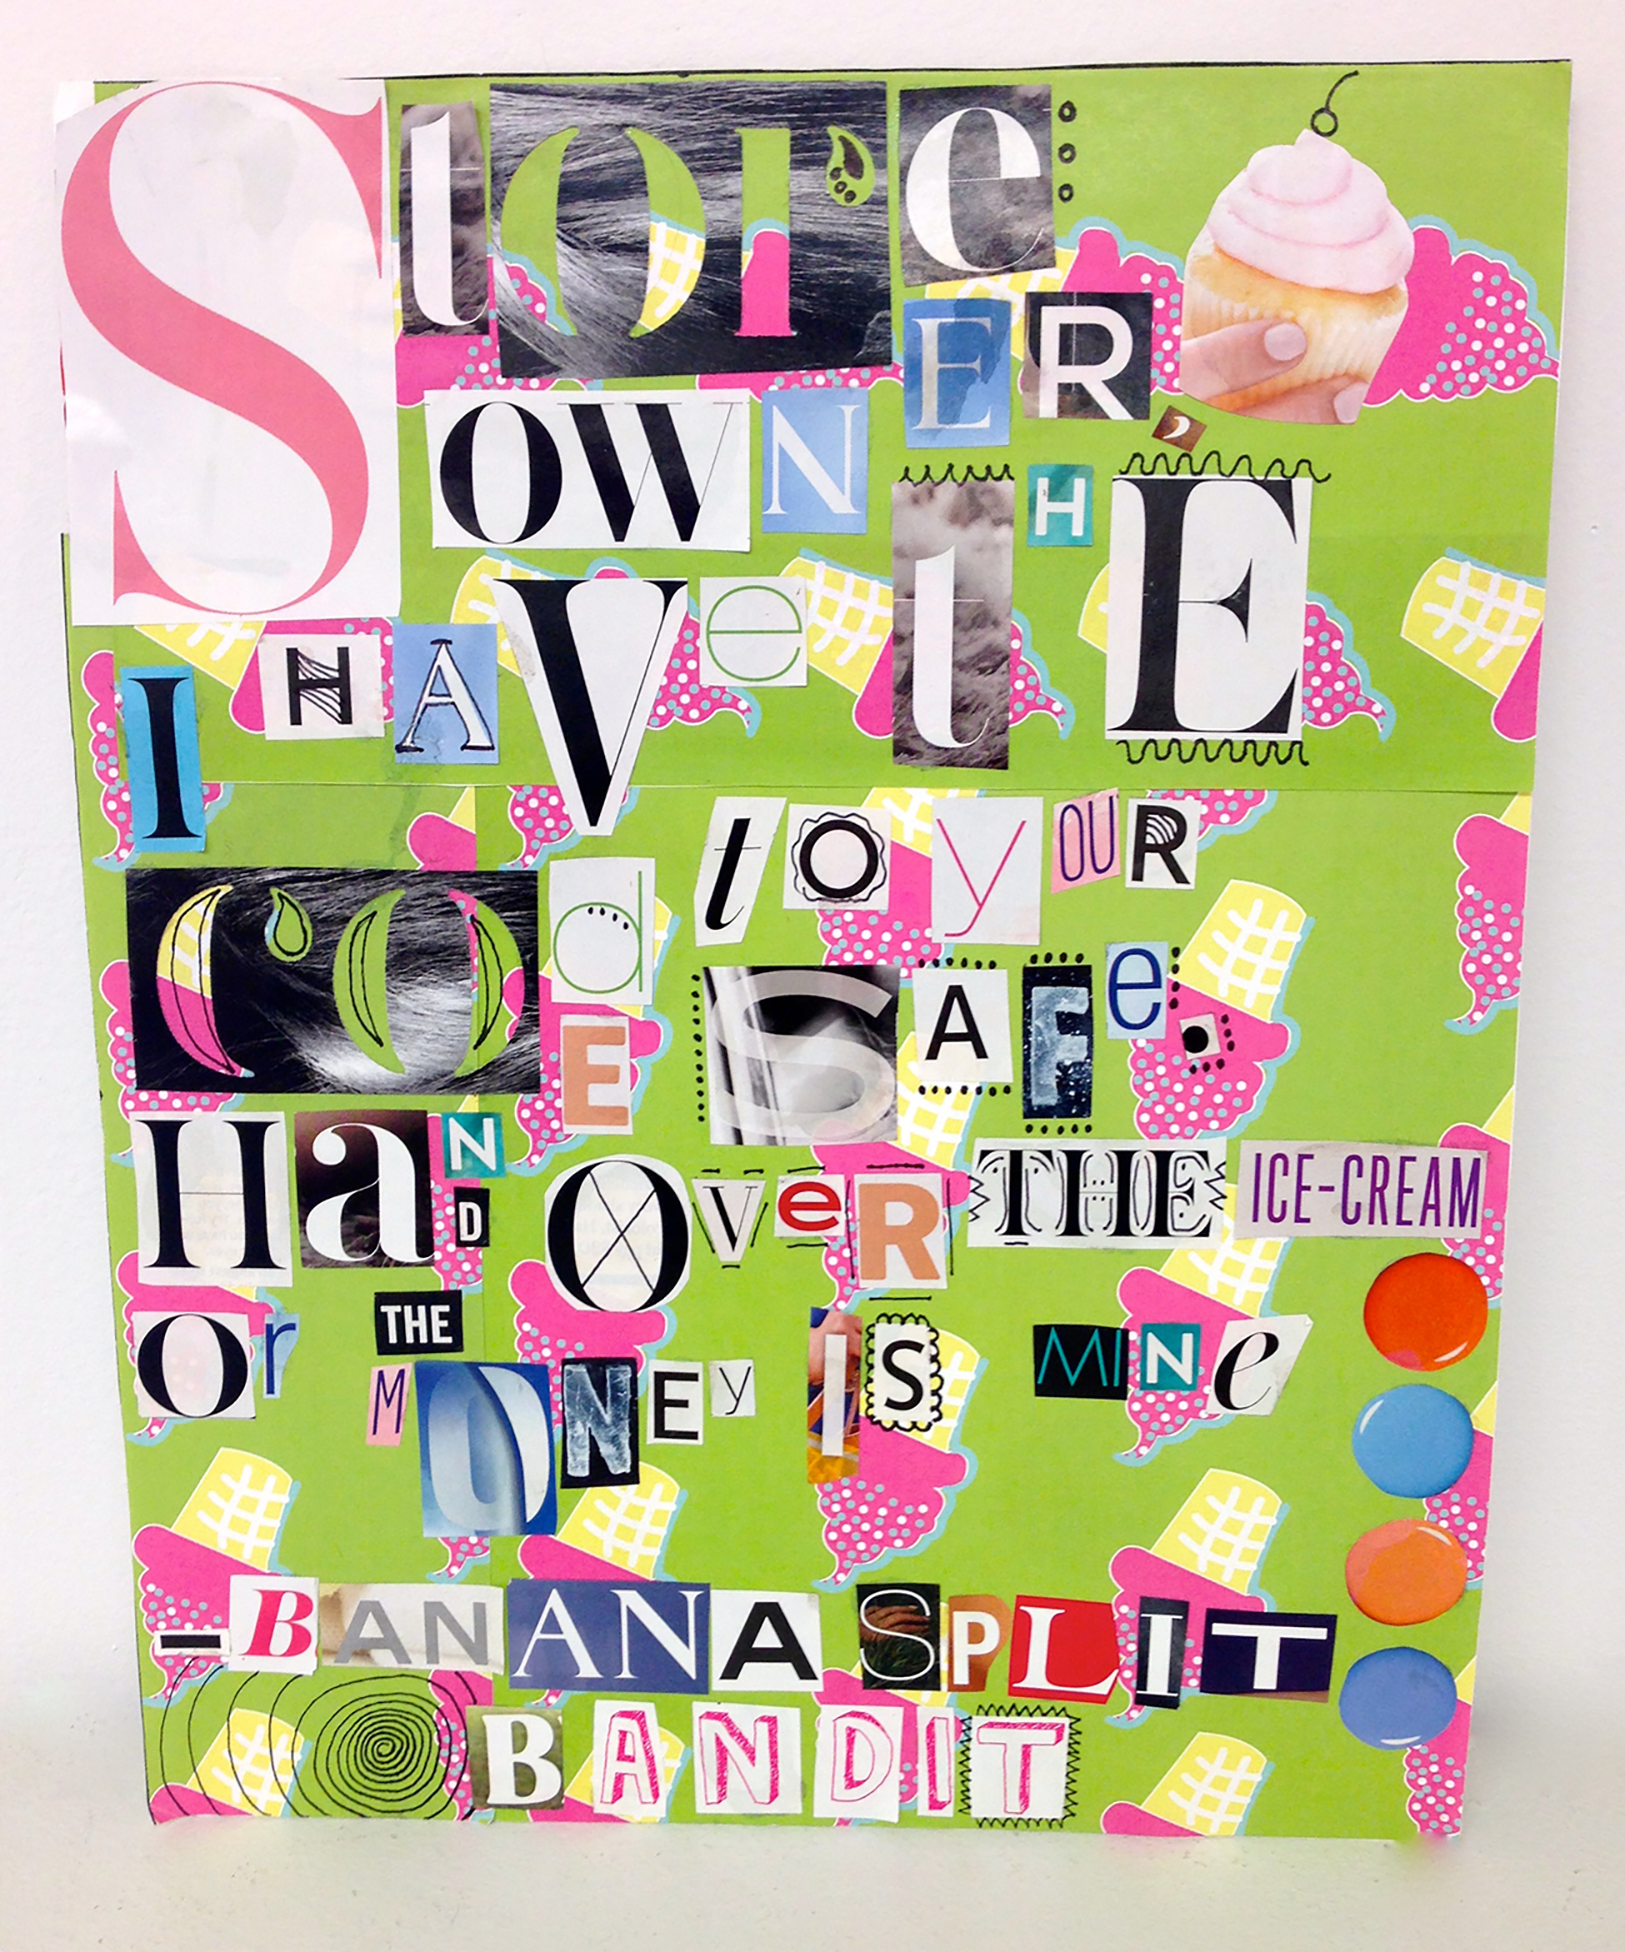 Store
OWNER,
I HAVe tHE
COdE to yOUR SAFe.
HaND OVeR THE ICE-CREAM
Or THE MONEy IS MINe
-BANANA SPLIT
BANDIT